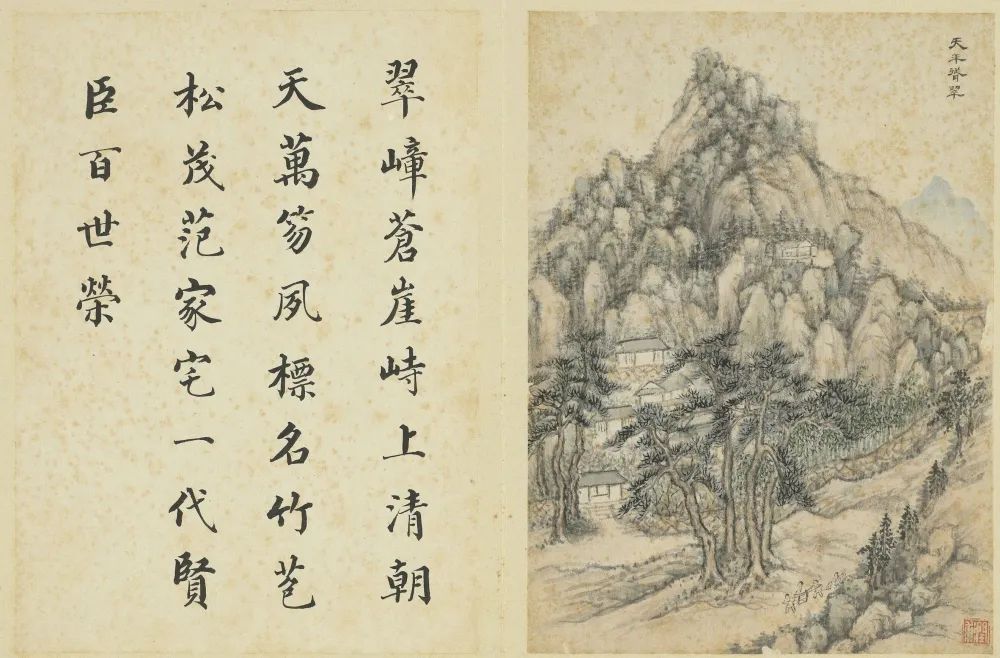 天平翠
翠嶂蒼崖峙上清朝
天萬笏夙標名竹苞
松茂范家宅一代賢
臣百世榮